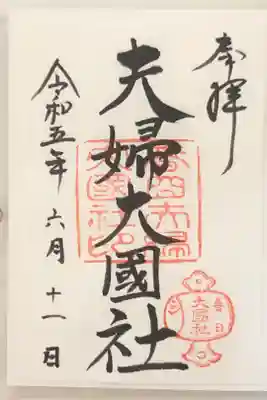 奉拝
夫婦大國社
令和五年 六月 十一日
春日
大國社